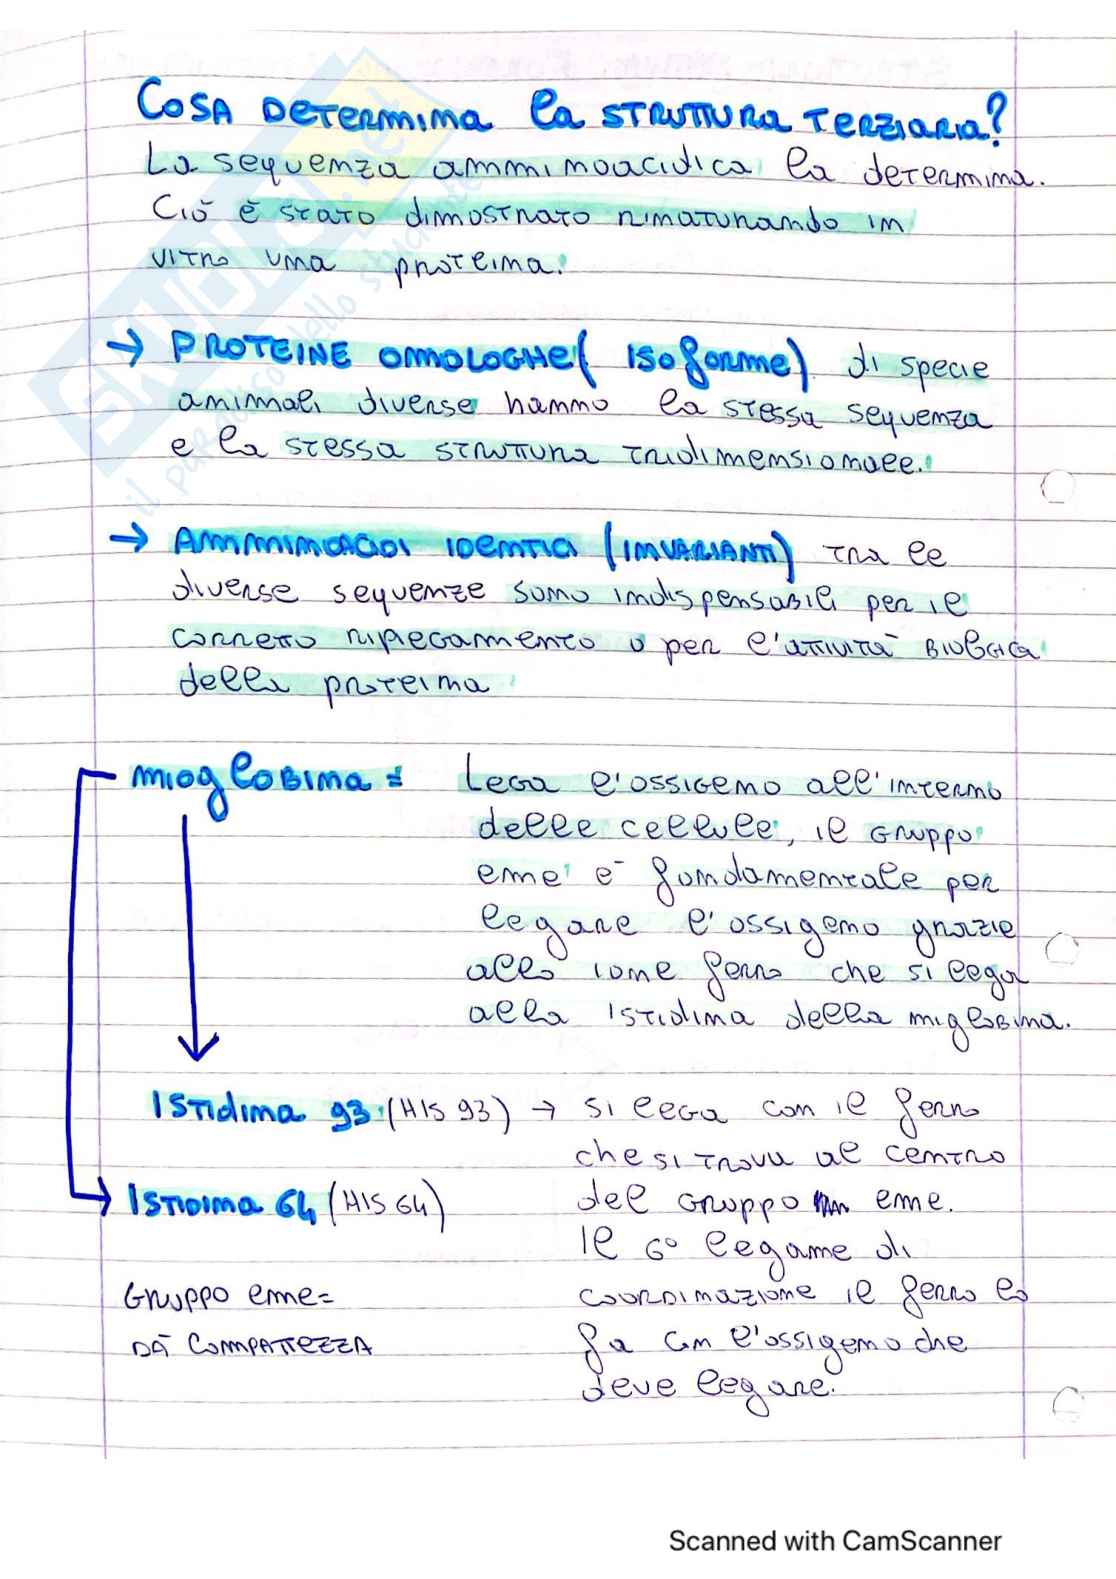 COSA DETERMINA la STRUTTURA TERZIARIA?
La sequenza amminoacidica la determina.
Ciò è stato dimostrato rinaturando in
vitro una proteina.
→ PROTEINE OMOLOGHE (ISOforme) di specie
animali diverse hanno la stessa sequenza
e la stessa struttura tridimensionale.
→ AMMINOACIDI IDENTICI (INVARIANTI) tra le
diverse sequenze sono indispensabili per il
corretto ripiegamento o per l'attività biologica
della proteina
mioglobina = Lega l'ossigeno all'interno
delle cellule, il gruppo
eme è fondamentale per
legare l'ossigeno grazie
allo ione ferro che si lega
alla istidina della miglobina.
ISTidina 93 (HIS 93) → si lega con il ferro
che si trova al centro
ISTIDINA 64 (HIS 64)
del gruppo eme.
Il 6° legame di
GRUPPO eme =
coordinazione il ferro lo
DÀ COMPATTEZZA
fa con l'ossigeno che
deve legare.
SKUOLA.net
il paradiso dello studente
Scanned with CamScanner